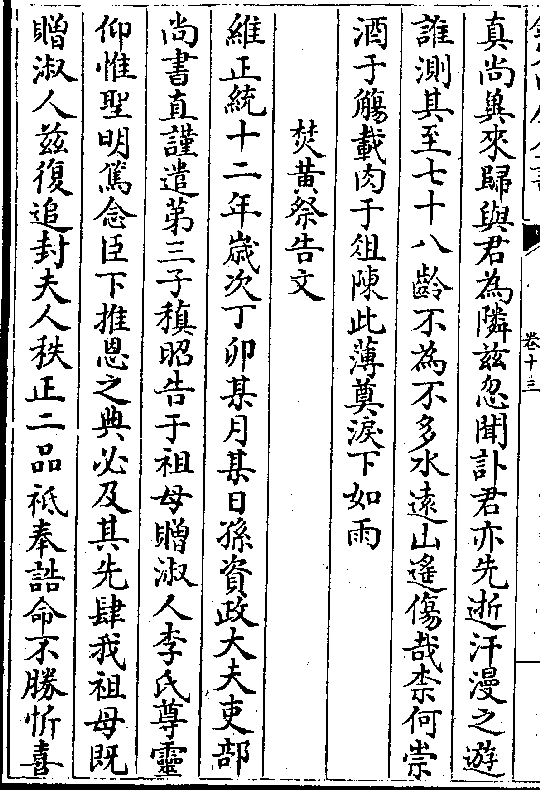 卷十三
真尚兾來歸與君為隣兹忽聞訃君亦先逝汗漫之遊
誰測其至七十八齡不為不多水遠山遙傷哉柰何崇
酒于觴載肉于俎陳此薄奠淚下如雨
焚黄祭告文
維正統十二年歲次丁卯某月某日孫資政大夫吏部
尚書直謹遣第三子稹昭告于祖母贈淑人李氏尊靈
仰惟聖明篤念臣下推恩之典必及其先肆我祖母既
贈淑人兹復追封夫人秩正二品祗奉誥命不勝忻喜